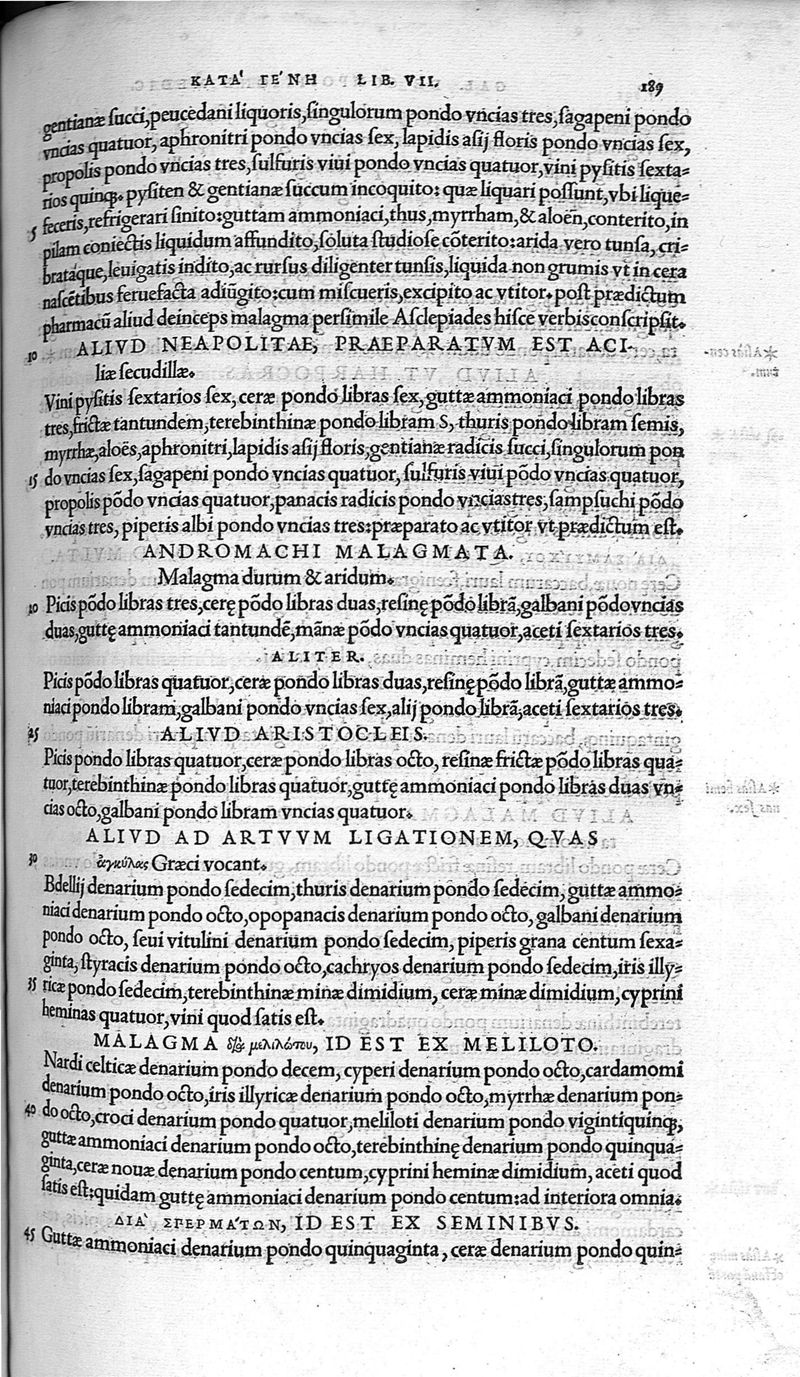 ΚΑΤΑ' ΓΕ'ΝΗ LIB. VII. 189
gentianæ ſucci, peucedani liquoris, ſingulorum pondo vncias tres, ſagapeni pondo
vncias quatuor, aphronitri pondo vncias ſex, lapidis aſij floris pondo vncias ſex,
propolis pondo vncias tres, ſulfuris viui pondo vncias quatuor, vini pyſitis ſexta-
rios quinq;. pyſiten & gentianæ ſuccum incoquito: quæ liquari poſſunt, vbi lique-
5 feceris, refrigerari ſinito: guttam ammoniaci, thus, myrrham, & aloën, conterito, in
pilam coniectis liquidum affundito, ſoluta ſtudioſe cõterito: arida vero tunſa, cri-
brataque, leuigatis indito, ac rurſus diligenter tunſis, liquida non grumis vt in cera
naſcẽtibus feruefacta adiũgito: cum miſcueris, excipito ac vtitor. poſt prædictum
pharmacũ aliud deinceps malagma perſimile Aſclepiades hiſce verbis conſcripſit.
10 ALIVD NEAPOLITAE, PRAEPARATVM EST ACI-
liæ ſecudillæ.
Vini pyſitis ſextarios ſex, ceræ pondo libras ſex, guttæ ammoniaci pondo libras
tres, frictæ tantundem, terebinthinæ pondo libram S, thuris pondo libram ſemis,
myrrhæ, aloës, aphronitri, lapidis aſij floris, gentianæ radicis ſucci, ſingulorum pon
15 do vncias ſex, ſagapeni pondo vncias quatuor, ſulfuris viui põdo vncias quatuor,
propolis põdo vncias quatuor, panacis radicis pondo vncias tres, ſampſuchi põdo
vncias tres, piperis albi pondo vncias tres: præparato ac vtitor vt prædictum eſt.
ANDROMACHI MALAGMATA.
Malagma durum & aridum.
20 Picis põdo libras tres, cerę põdo libras duas, reſinę põdo librã, galbani põdo vncias
duas, guttę ammoniaci tantundẽ, mãnæ põdo vncias quatuor, aceti ſextarios tres.
ALITER.
Picis põdo libras quatuor, ceræ pondo libras duas, reſinę põdo librã, guttæ ammo-
niaci pondo libram, galbani pondo vncias ſex, alij pondo librã, aceti ſextarios tres.
25 ALIVD ARISTOCLEIS.
Picis pondo libras quatuor, ceræ pondo libras octo, reſinæ frictæ põdo libras qua-
tuor, terebinthinæ pondo libras quatuor, guttę ammoniaci pondo libras duas vn-
cias octo, galbani pondo libram vncias quatuor.
ALIVD AD ARTVVM LIGATIONEM, QVAS
30 ἀγκύλας Græci vocant.
Bdellij denarium pondo ſedecim, thuris denarium pondo ſedecim, guttæ ammo-
niaci denarium pondo octo, opopanacis denarium pondo octo, galbani denarium
pondo octo, ſeui vitulini denarium pondo ſedecim, piperis grana centum ſexa-
ginta, ſtyracis denarium pondo octo, cachryos denarium pondo ſedecim, iris illy-
35 ricæ pondo ſedecim, terebinthinæ minæ dimidium, ceræ minæ dimidium, cyprini
heminas quatuor, vini quod ſatis eſt.
MALAGMA διὰ μελιλώτου, ID EST EX MELILOTO.
Nardi celticæ denarium pondo decem, cyperi denarium pondo octo, cardamomi
denarium pondo octo, iris illyricæ denarium pondo octo, myrrhæ denarium pon-
40 do octo, croci denarium pondo quatuor, meliloti denarium pondo vigintiquinq;,
guttæ ammoniaci denarium pondo octo, terebinthinę denarium pondo quinqua-
ginta, ceræ nouæ denarium pondo centum, cyprini heminæ dimidium, aceti quod
ſatis eſt: quidam guttę ammoniaci denarium pondo centum: ad interiora omnia.
ΔΙΑ' ΣΠΕΡΜΑ'ΤΩΝ, ID EST EX SEMINIBVS.
45 Guttæ ammoniaci denarium pondo quinquaginta, ceræ denarium pondo quin-